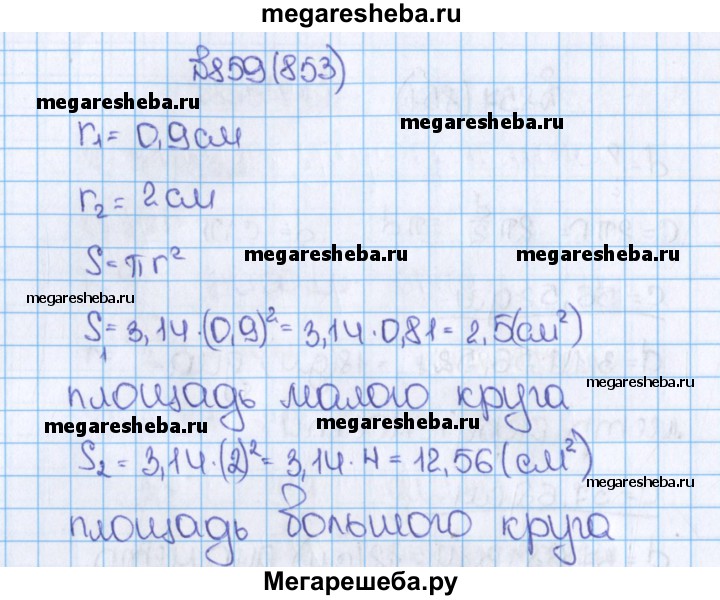 megaresheba.ru
№859(853)
megaresheba.ru
megaresheba.ru
r₁= 0,9см
r₂= 2см
S=πr²
megaresheba.ru
megaresheba.ru
megaresheba.ru
S₁= 3,14·(0,9)²= 3,14·0,81= 2,5(см²)
площадь малого круга
megaresheba.ru
megaresheba.ru
megaresheba.ru
S₂= 3,14·(2)²= 3,14·4= 12,56(см²)
megaresheba.ru
площадь большого круга
Мегарешеба.ру